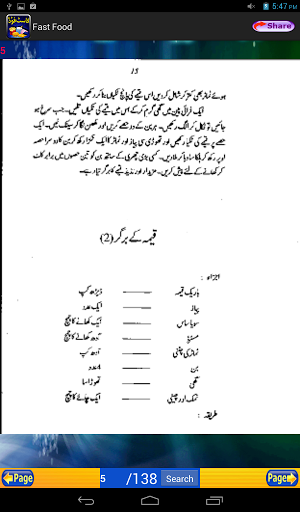 5:47 PM
Fast Food
Share
5
15
ہوئے ٹماٹر بھی کتر کر شامل کر دیں اس قیمے کی پانچ ٹکیاں بنا کر رکھیں۔
ایک فرائی پین میں گھی گرم کر کے اس میں قیمے کی ٹکیاں تلیں۔ جب سرخ ہو
جائیں تو نکال کر الگ رکھیں۔ ہر بن کے دو حصے کریں اور مکھن لگا کر سینک لیں۔ ایک
حصے پر قیمے کی ٹکیا رکھیں اور تھوڑی سی پیاز اور ٹماٹر کا ایک ٹکڑا رکھ کر بن کا دوسرا حصہ
اوپر رکھ کر ہلکا سا دبا کر ملا دیں۔ کسی بڑی چھری کے ساتھ بن کو تین حصوں میں برابر کاٹ
کر کھانے کے لئے پیش کریں۔ مزیدار اور لذیذ قیمے کا برگر تیار ہے۔
قیمہ کے برگر (2)
اجزاء :
باریک قیمہ ڈیڑھ کپ
پیاز ایک عدد
سویا ساس ایک کھانے کا چمچ
مسٹرڈ آدھ کھانے کا چمچ
ٹماٹر کی چٹنی آدھ کپ
بن 4 عدد
گھی تھوڑا سا
نمک اور چینی ایک چائے کا چمچ
طریقہ :
Page
5
/138
Search
Page